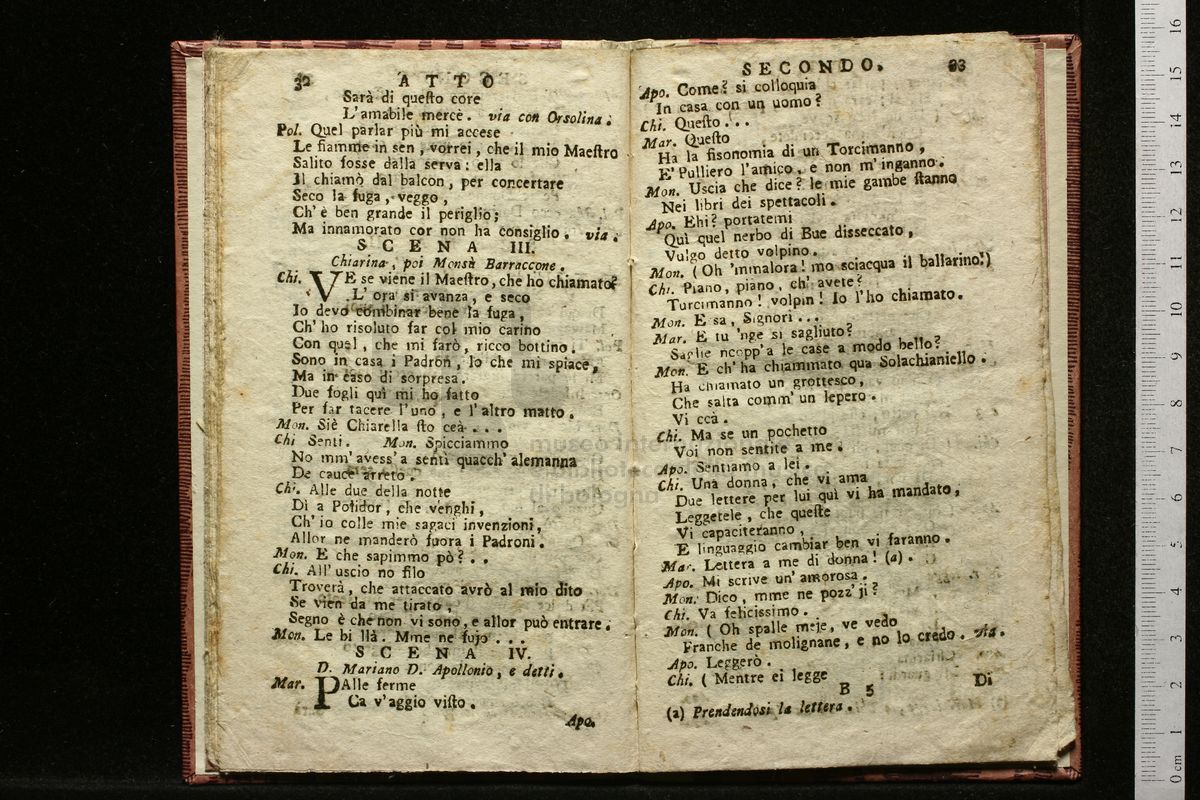 32 ATTO
Sarà di questo core
L'amabile mercè. via con Orsolina.
Pol. Quel parlar più mi accese
Le fiamme in sen, vorrei, che il mio Maestro
Salito fosse dalla serva: ella
Il chiamò dal balcon, per concertare
Seco la fuga, veggo,
Ch'è ben grande il periglio;
Ma innamorato cor non ha consiglio. via.
SCENA III.
Chiarina, poi Monsù Barraccone.
Chi. VE se viene il Maestro, che ho chiamato?
L'ora si avanza, e seco
Io devo combinar bene la fuga,
Ch'ho risoluto far col mio carino
Con quel, che mi farò, ricco bottino.
Sono in casa i Padron, lo che mi spiace,
Ma in caso di sorpresa.
Due fogli quì mi ho fatto
Per far tacere l'uno, e l'altro matto.
Mon. Siè Chiarella sto ccà...
Chi Senti. Mon. Spicciammo
No mm'avess'a sentì quacch'alemanna
De cauce arreto.
Chi. Alle due della notte
Dì a Polidor, che venghi,
Ch'io colle mie sagaci invenzioni,
Allor ne manderò fuora i Padroni.
Mon. E che sapimmo pò?..
Chi. All'uscio no filo
Troverà, che attaccato avrò al mio dito
Se vien da me tirato,
Segno è che non vi sono, e allor può entrare.
Mon. Le bi llà. Mme ne fujo...
SCENA IV.
D. Mariano D. Apollonio, e detti.
Mar. PAlle ferme
Ca v'aggio visto.
Apo.
SECONDO. 33
Apo. Come? si colloquia
In casa con un uomo?
Chi. Questo...
Mar. Questo
Ha la fisonomia di un Torcimanno,
E' Pulliero l'amico, e non m'inganno.
Mon. Uscia che dice? le mie gambe stanno
Nei libri dei spettacoli.
Apo. Ehi? portatemi
Quì quel nerbo di Bue disseccato,
Vulgo detto volpino.
Mon. (Oh 'mmalora! mo sciacqua il ballarino!)
Chi. Piano, piano, ch'avete?
Turcimanno! volpin! Io l'ho chiamato.
Mon. E sa, Signori...
Mar. E tu 'nge si sagliuto?
Saglie ncopp'a le case a modo bello?
Mon. E ch'ha chiammato qua Solachianiello.
Ha chiamato un grottesco,
Che salta comm'un lepero.
Vi ccà.
Chi. Ma se un pochetto
Voi non sentite a me.
Apo. Sentiamo a lei.
Chi. Una donna, che vi ama
Due lettere per lui quì vi ha mandato,
Leggetele, che queste
Vi capaciteranno,
E linguaggio cambiar ben vi faranno.
Mar. Lettera a me di donna! (a).
Apo. Mi scrive un'amorosa.
Mon. Dico, mme ne pozz'ji?
Chi. Va felicissimo.
Mon. (Oh spalle meje, ve vedo
Franche de molignane, e no lo credo. via.
Apo. Leggerò.
Chi. (Mentre ei legge
B 5 Di
(a) Prendendosi la lettera.
museo inter
bibliote
di bologna
0 cm 1 2 3 4 5 6 7 8 9 10 11 12 13 14 15 16